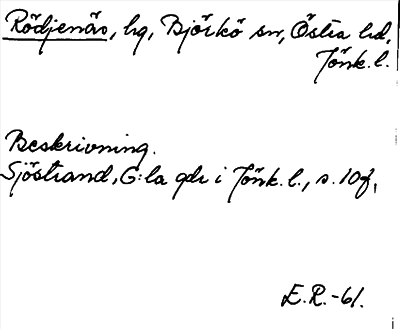 Rödjenäs, hg, Björkö sn, Östra hd,
Jönk.l.
Beskrivning.
Sjöstrand, G:la gdr i Jönk.l., s. 10f,
E.R.-61.